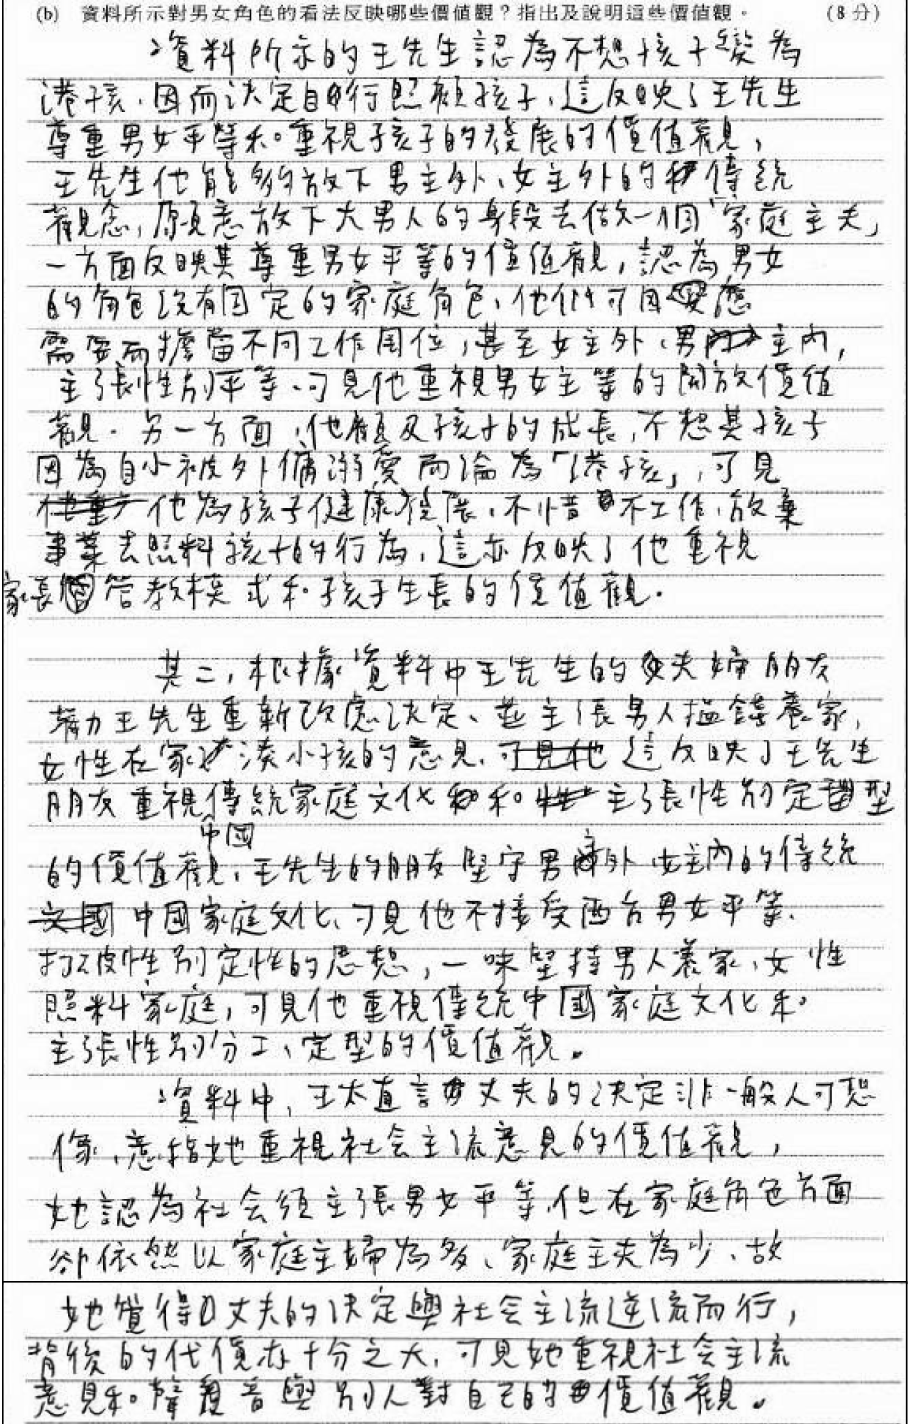 (b) 資料所示對男女角色的看法反映哪些價值觀？指出及說明這些價值觀。 (8 分)
資料所示的王先生認為不想孩子變為
港孩，因而決定自行照顧孩子，這反映了王先生
尊重男女平等和重視孩子的發展的價值觀，
王先生他能夠放下男主外、女主外的傳統
觀念，願意放下大男人的身段去做一個「家庭主夫」
一方面反映其尊重男女平等的價值觀，認為男女
的角色沒有固定的家庭角色，他們可因應
需要而擔當不同工作崗位，甚至女主外、男主內，
主張性別平等、可見他重視男女主等的開放價值
觀。另一方面，他顧及孩子的成長，不想其孩子
因為自小被外傭溺愛而淪為「港孩」，可見
他為孩子健康發展，不惜不工作，放棄
事業去照料孩子的行為，這亦反映了他重視
家長管教模式和孩子生長的價值觀。
其二，根據資料中王先生的夫婦朋友
勸王先生重新改慮決定、並主張男人搵錢養家，
女性在家湊小孩的意見，這反映了王先生
朋友重視傳統家庭文化和主張性別定型
的價值觀，王先生的朋友堅守中國男主外女主內的傳統
中國家庭文化，可見他不接受西方男女平等、
打破性別定性的思想，一味堅持男人養家、女性
照料家庭，可見他重視傳統中國家庭文化和
主張性別分工、定型的價值觀。
資料中，王太直言丈夫的決定非一般人可想
像，意指她重視社会主流意見的價值觀，
她認為社会須主張男女平等，但在家庭角色方面
卻依然以家庭主婦為多、家庭主夫為少、故
她覺得丈夫的決定與社会主流逆流而行，
背後的代價亦十分之大，可見她重視社会主流
意見和聲音與別人對自己的價值觀。